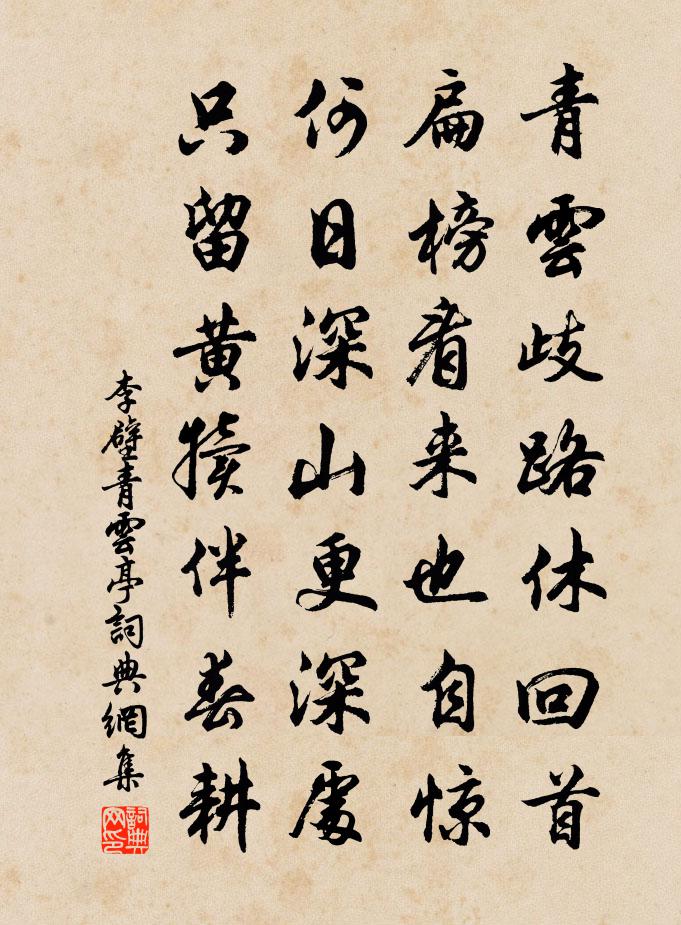 青雲歧路休回首
扁榜看来也自惊
何日深山更深處
只留黄犢伴春耕
李壁青雲亭詞典網集
詞典网印